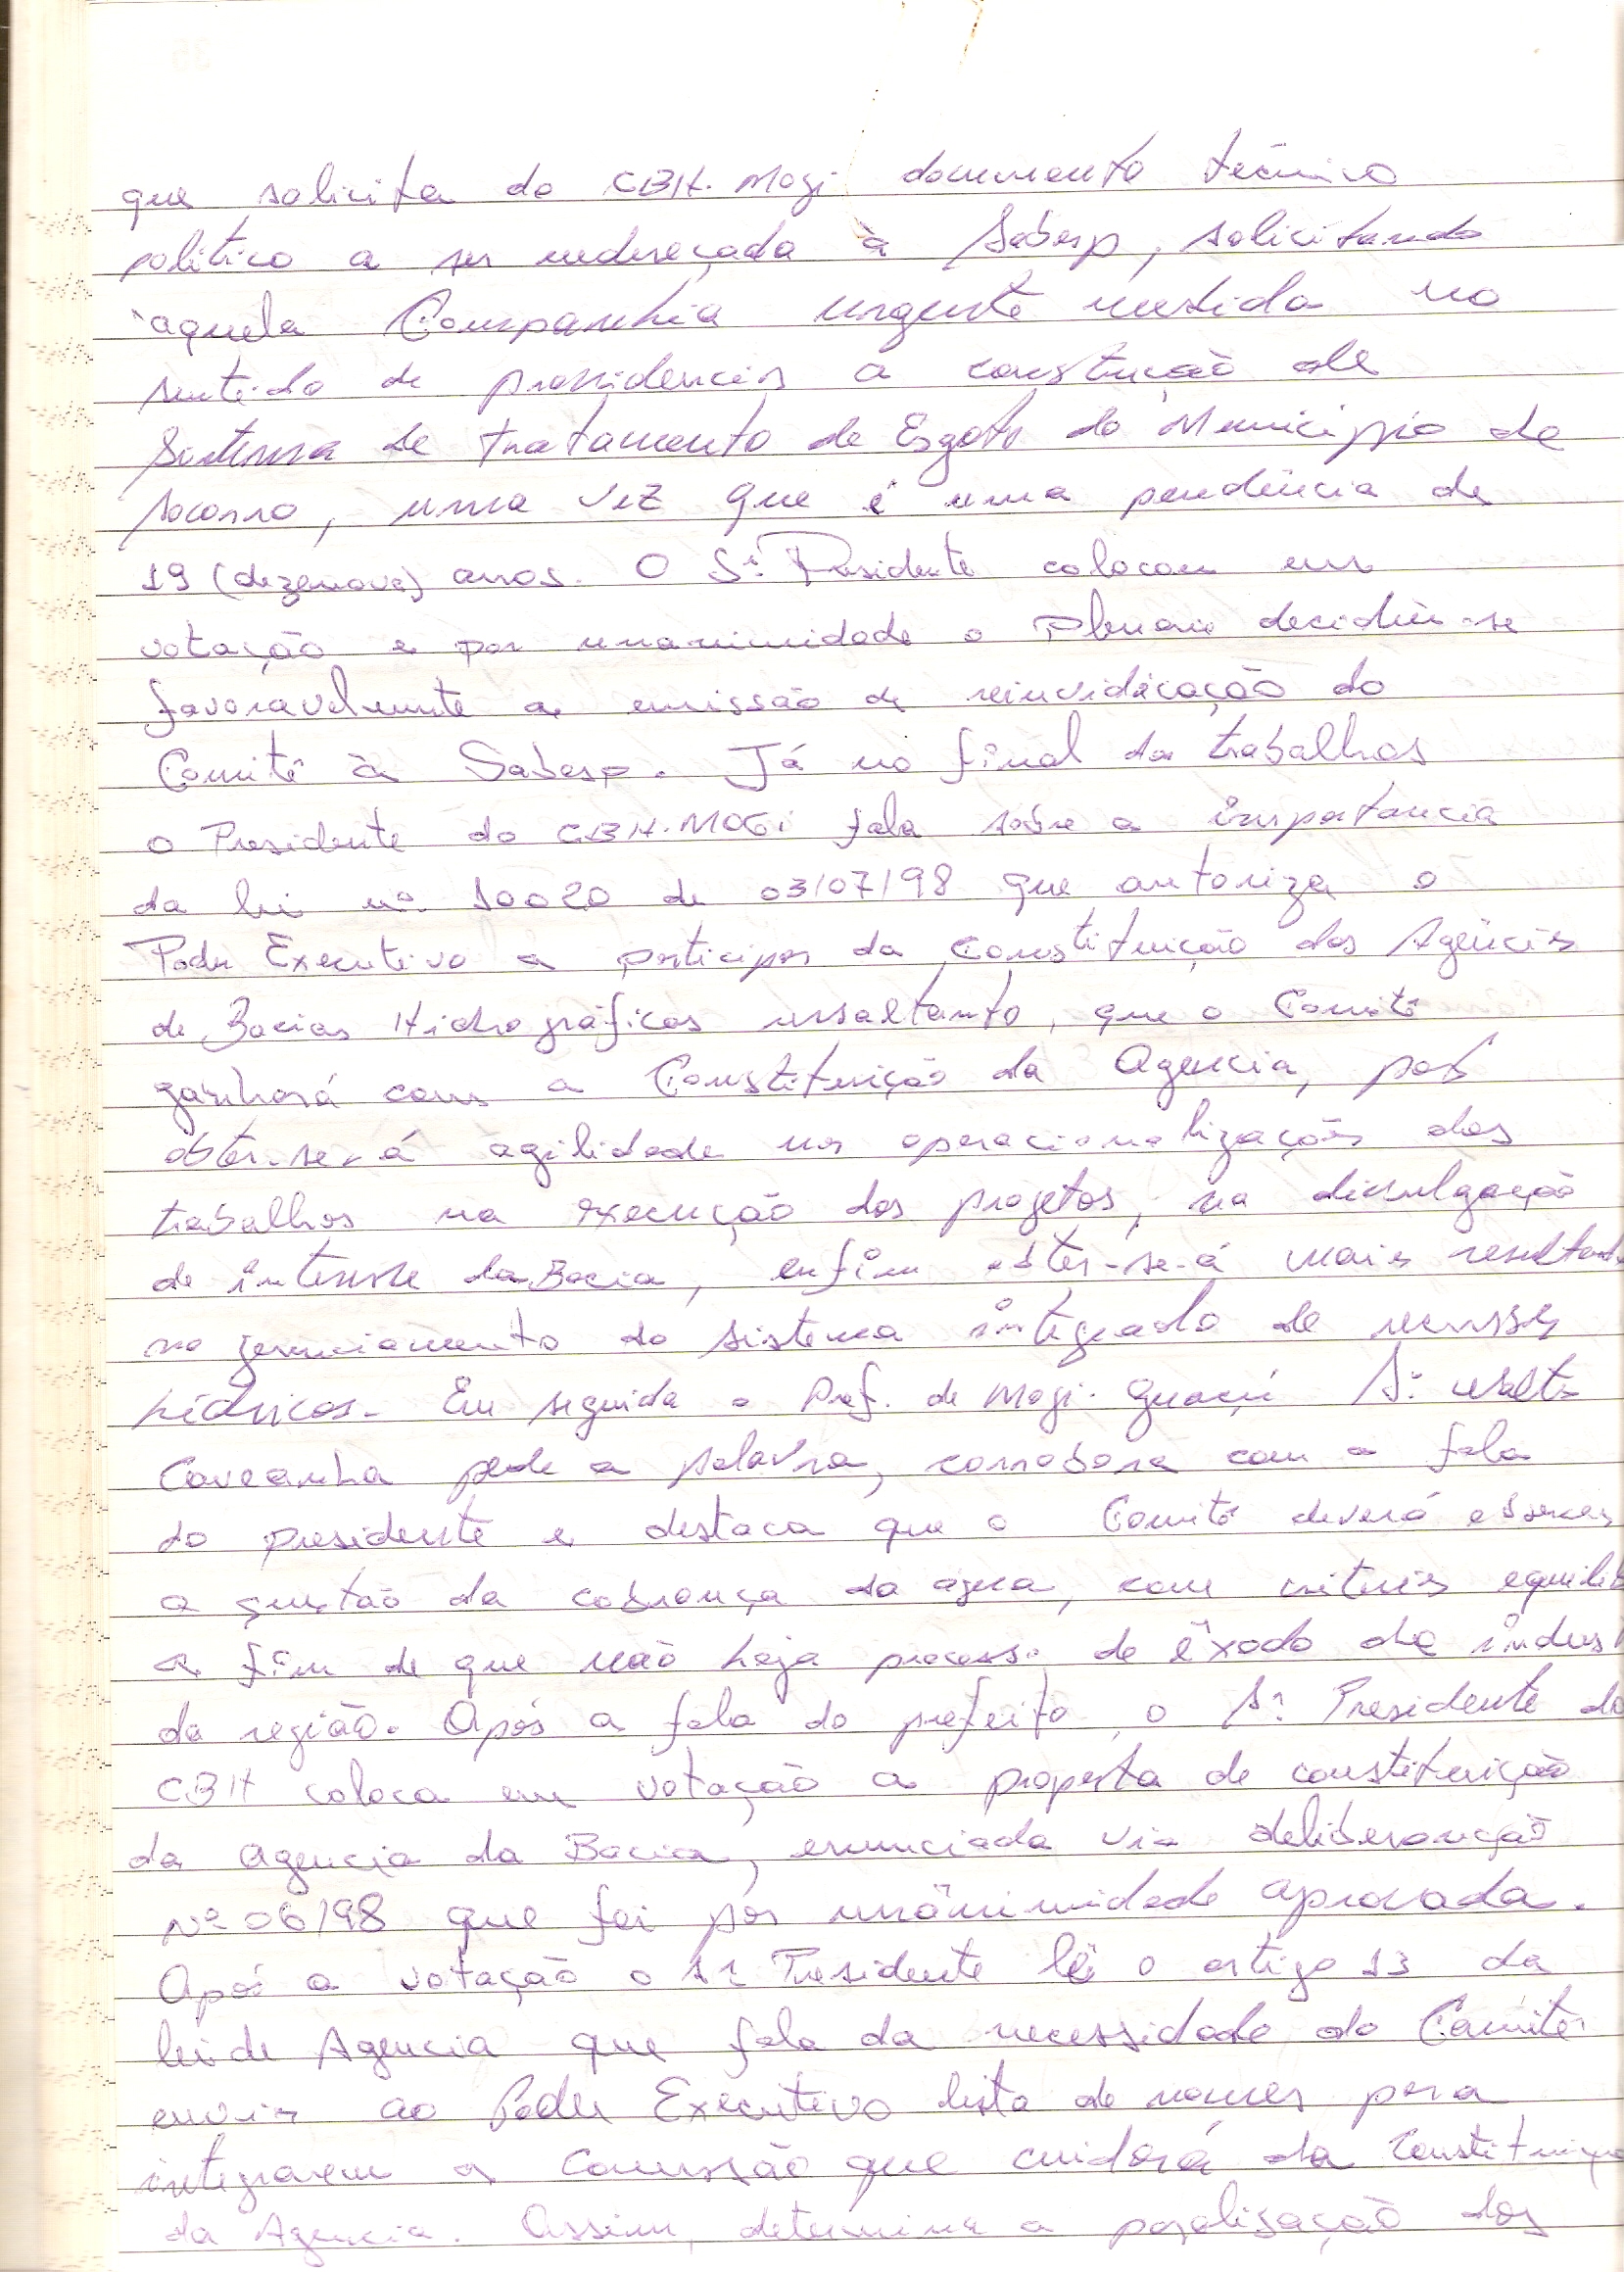 que solicita do CBH-Mogi documento técnico
politico a ser endereçada à Sabesp, solicitando
àquela Companhia urgente medida no
sentido de providencias a construção de
Sistema de tratamento de Esgoto do Município de
Socorro, uma vez que é uma pendência de
19 (dezenove) anos. O Sr. Presidente colocou em
votação e por unanimidade o Plenario decidiu-se
favoravelmente a emissão de reinvidicação do
Comitê à Sabesp. Já no final dos trabalhos
o Presidente do CBH-MOGi fala sobre a importancia
da lei nº 10020 de 03/07/98 que autoriza o
Poder Executivo a participar da Constituição das Agências
de Bacias Hidrográficas ressaltanto, que o Comitê
ganhará com a Constituição da Agencia, pois
obter-se-á agilidade nas operacionalizações dos
trabalhos na execução dos projetos, na divulgação
de interesse da Bacia, enfim obter-se-á mais resultado
no gerenciamento do sistema integrado de recursos
hídricos. Em seguida o Pref. de Mogi-Guaçú Sr. Walter
Caveanha pede a palavra, corrobora com a fala
do presidente e destaca que o Comitê deverá
a questão da cobrança da agua, com criterios equilib
a fim de que não haja processo de êxodo de indust
da região. Após a fala do prefeito, o Sr. Presidente do
CBH coloca em votação a proposta de constituição
da agencia da Bacia, enunciada via deliberanção
Nº 06/98 que foi por unânimidade aprovada.
Após a votação o Sr Presidente lê o artigo 13 da
lei de Agencia que fala da necessidade do Comitê
enviar ao Poder Executivo lista de nomes para
integrarem a Comissão que cuidará da Constituiçã
da Agencia. Assim, determina a paralisação dos